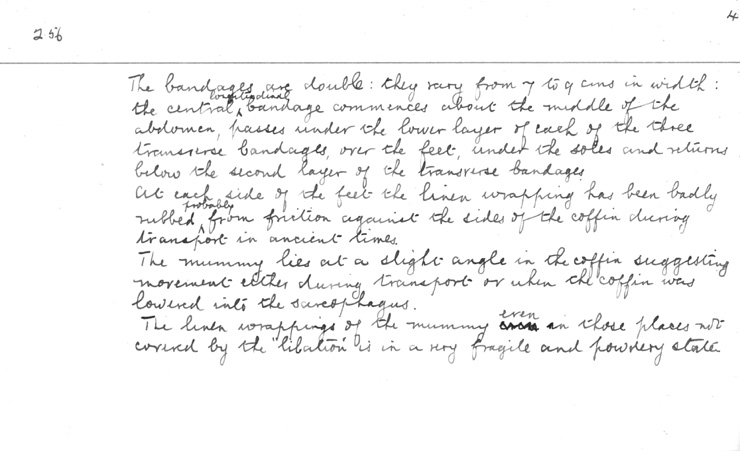 4
256
The bandages are double: they vary from 7 to 9 cms in width:
the central longitudinal bandage commences about the middle of the
abdomen, passes under the lower layer of each of the three
transverse bandages, over the feet, under the soles and returns
below the second layer of the transverse bandages.
At each side of the feet the linen wrapping has been badly
rubbed probably from friction against the sides of the coffin during
transport in ancient times.
The mummy lies at a slight angle in the coffin suggesting
movement either during transport or when the coffin was
lowered into the sarcophagus.
The linen wrappings of the mummy even in those places not
covered by the "libation" is in a very fragile and powdery state